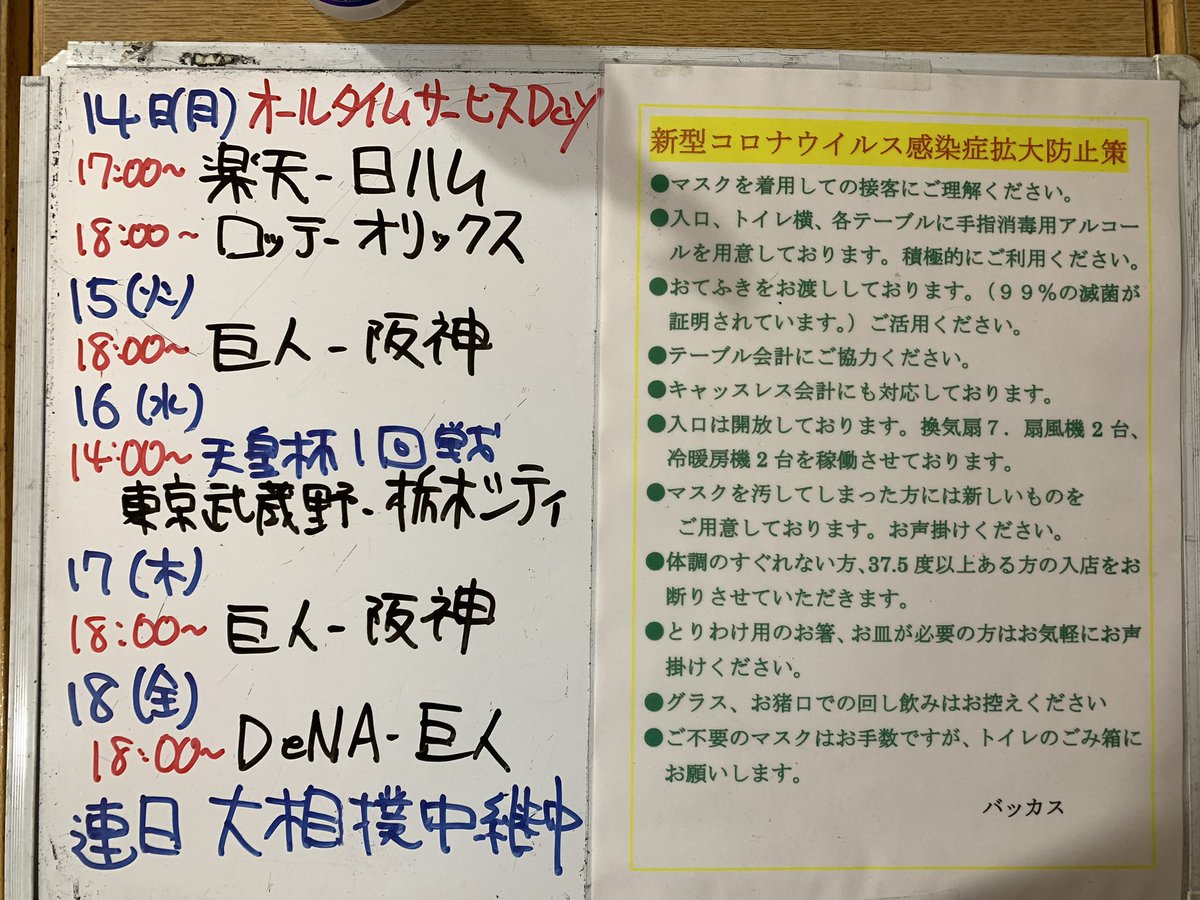 14日(月) オールタイムサービスDay
17:00~ 楽天-日ハム
18:00~ ロッテ-オリックス
15(火)
18:00~ 巨人-阪神
16(水)
14:00~ 天皇杯1回戦
東京武蔵野-栃木シティ
17(木)
18:00~ 巨人-阪神
18(金)
18:00~ DeNA-巨人
連日 大相撲中継中
新型コロナウイルス感染症拡大防止策
●マスクを着用しての接客にご理解ください。
●入口、トイレ横、各テーブルに手指消毒用アルコー
ルを用意しております。積極的にご利用ください。
●おてふきをお渡ししております。（９９％の滅菌が
証明されています。）ご活用ください。
●テーブル会計にご協力ください。
●キャッスレス会計にも対応しております。
●入口は開放しております。換気扇７．扇風機２台、
冷暖房機２台を稼働させております。
●マスクを汚してしまった方には新しいものを
ご用意しております。お声掛けください。
●体調のすぐれない方、37.5度以上ある方の入店をお
断りさせていただきます。
●とりわけ用のお箸、お皿が必要の方はお気軽にお声
掛けください。
●グラス、お猪口での回し飲みはお控えください
●ご不要のマスクはお手数ですが、トイレのごみ箱に
お願いします。
バッカス